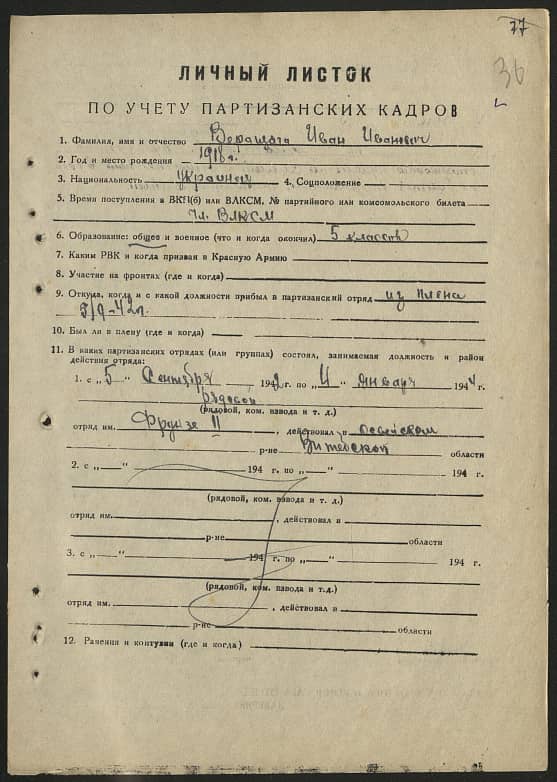 77
36
ЛИЧНЫЙ ЛИСТОК
ПО УЧЕТУ ПАРТИЗАНСКИХ КАДРОВ
1. Фамилия, имя и отчество Веращага Иван Иванович
2. Год и место рождения 1918 г.
3. Национальность украинец 4. Соцположение
5. Время поступления в ВКП(б) или ВЛКСМ, № партийного или комсомольского билета
Чл. ВЛКСМ
6. Образование: общее и военное (что и когда окончил) 5 классов
7. Каким РВК и когда призван в Красную Армию
8. Участие на фронтах (где и когда)
9. Откуда, когда и с какой должности прибыл в партизанский отряд из плена
5/9-42 г.
10. Был ли в плену (где и когда)
11. В каких партизанских отрядах (или группах) состоял, занимаемая должность и район
действия отряда:
1. с „5" Сентября 1942 г. по „4" января 1944 г.
рядовой
(рядовой, ком. взвода и т. д.)
отряд им. Фрунзе II, действовал в Освейском
р-не Витебской области
2. с „ " 194 г. по „ " 194 г.
(рядовой, ком. взвода и т. д.)
отряд им. , действовал в
р-не области
3. с „ " 194 г. по „ " 194 г.
(рядовой, ком. взвода и т.д.)
отряд им. , действовал в
р-не области
12. Ранения и контузии (где и когда)